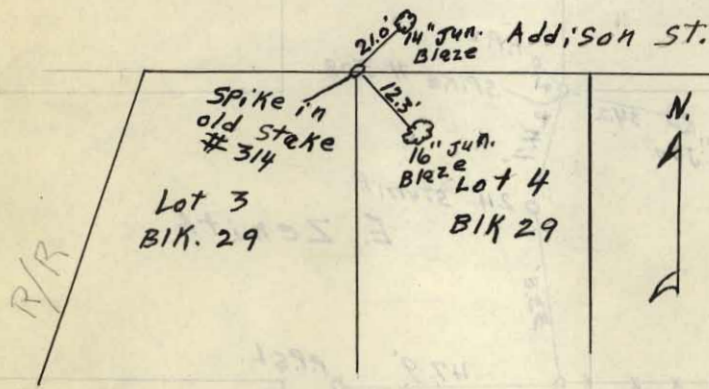 21.0'
14" Jun.
Blaze
Addison St.
Spike in
old stake
#314
12.3'
16" Jun.
Blaze
N.
Lot 3
Blk. 29
Lot 4
Blk 29
R/R
E Zenith
47.9'